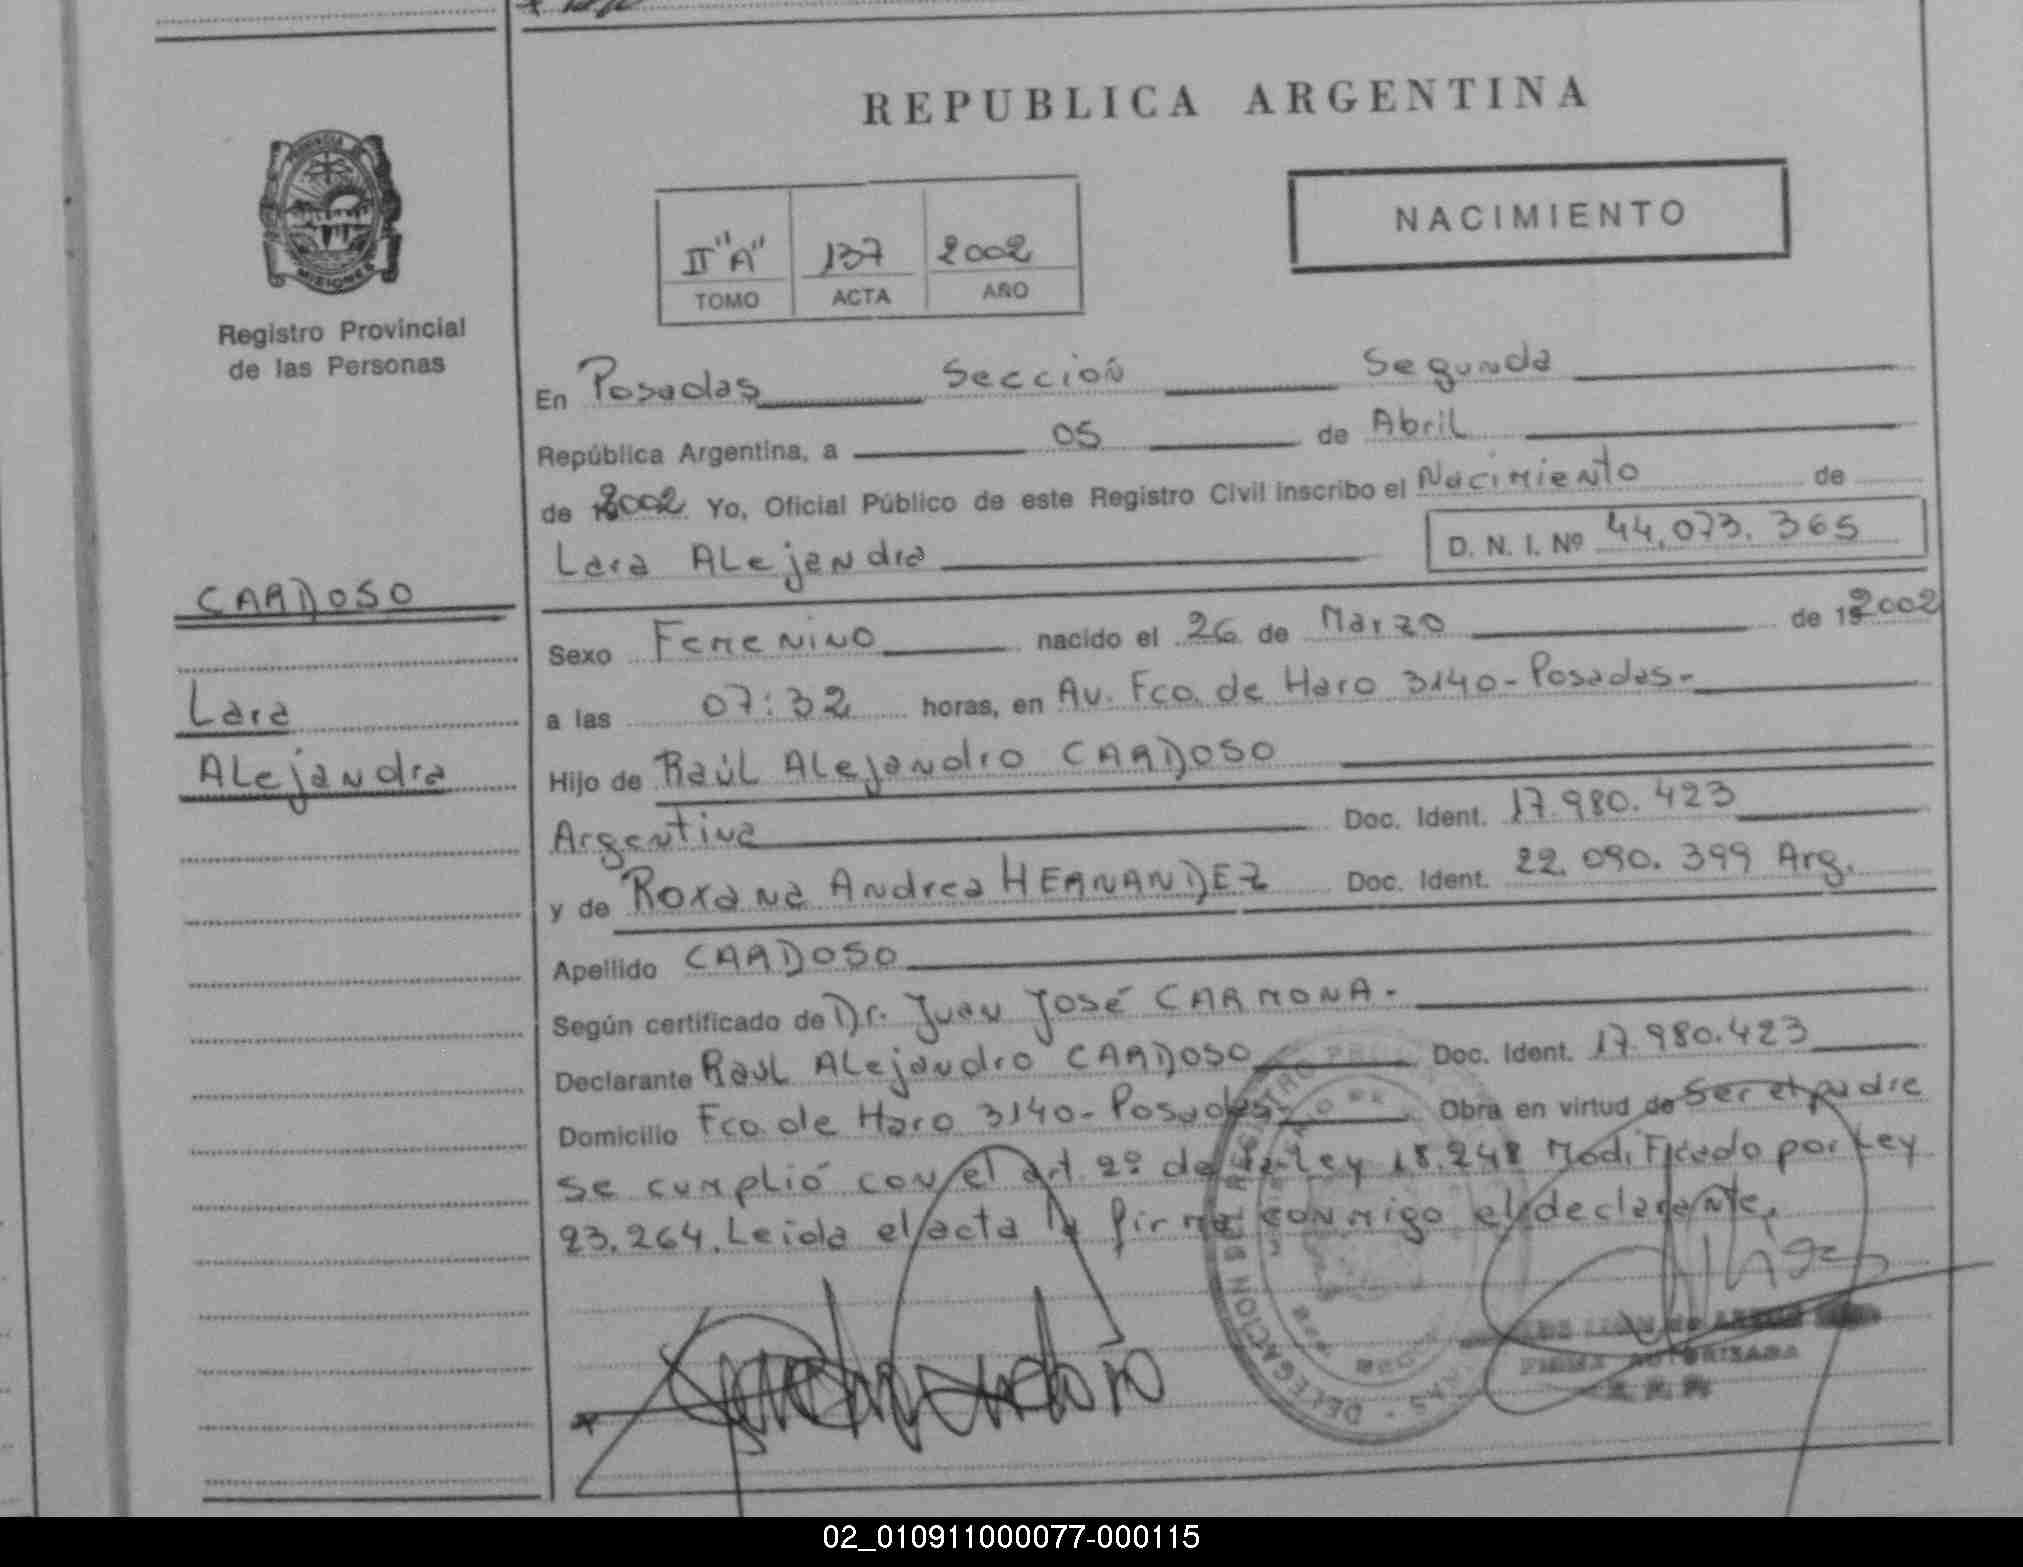 REPUBLICA ARGENTINA
NACIMIENTO
II "A" 137 2002
TOMO ACTA AÑO
PROVINCIA DE
MISIONES
Registro Provincial
de las Personas
En Posadas Sección Segunda
República Argentina, a 05 de Abril
de 2002 Yo, Oficial Público de este Registro Civil inscribo el Nacimiento de
Lara ALejandra D. N. I. Nº 44.073.365
CARDOSO
Lara
ALejandra
Sexo Femenino nacido el 26 de Marzo de 19 2002
a las 07:32 horas, en Av. Fco. de Haro 3140-Posadas-
Hijo de Raúl ALejandro CARDOSO
Argentina Doc. Ident. 17.980.423
y de Roxana Andrea HERNANDEZ Doc. Ident. 22.090.399 Arg.
Apellido CARDOSO
Según certificado de Dr. Juan José CARMONA-
Declarante Raul ALejandro CARDOSO Doc. Ident. 17.980.423
Domicilio Fco. de Haro 3140-Posadas- Obra en virtud de ser el padre
se cumplió con el art. 2º de la Ley 18.248 Modificado por Ley
23.264. Leida el acta la firma conmigo el declarante.
DELEGACION DEL REGISTRO
FIRMA AUTORIZADA
02_010911000077-000115